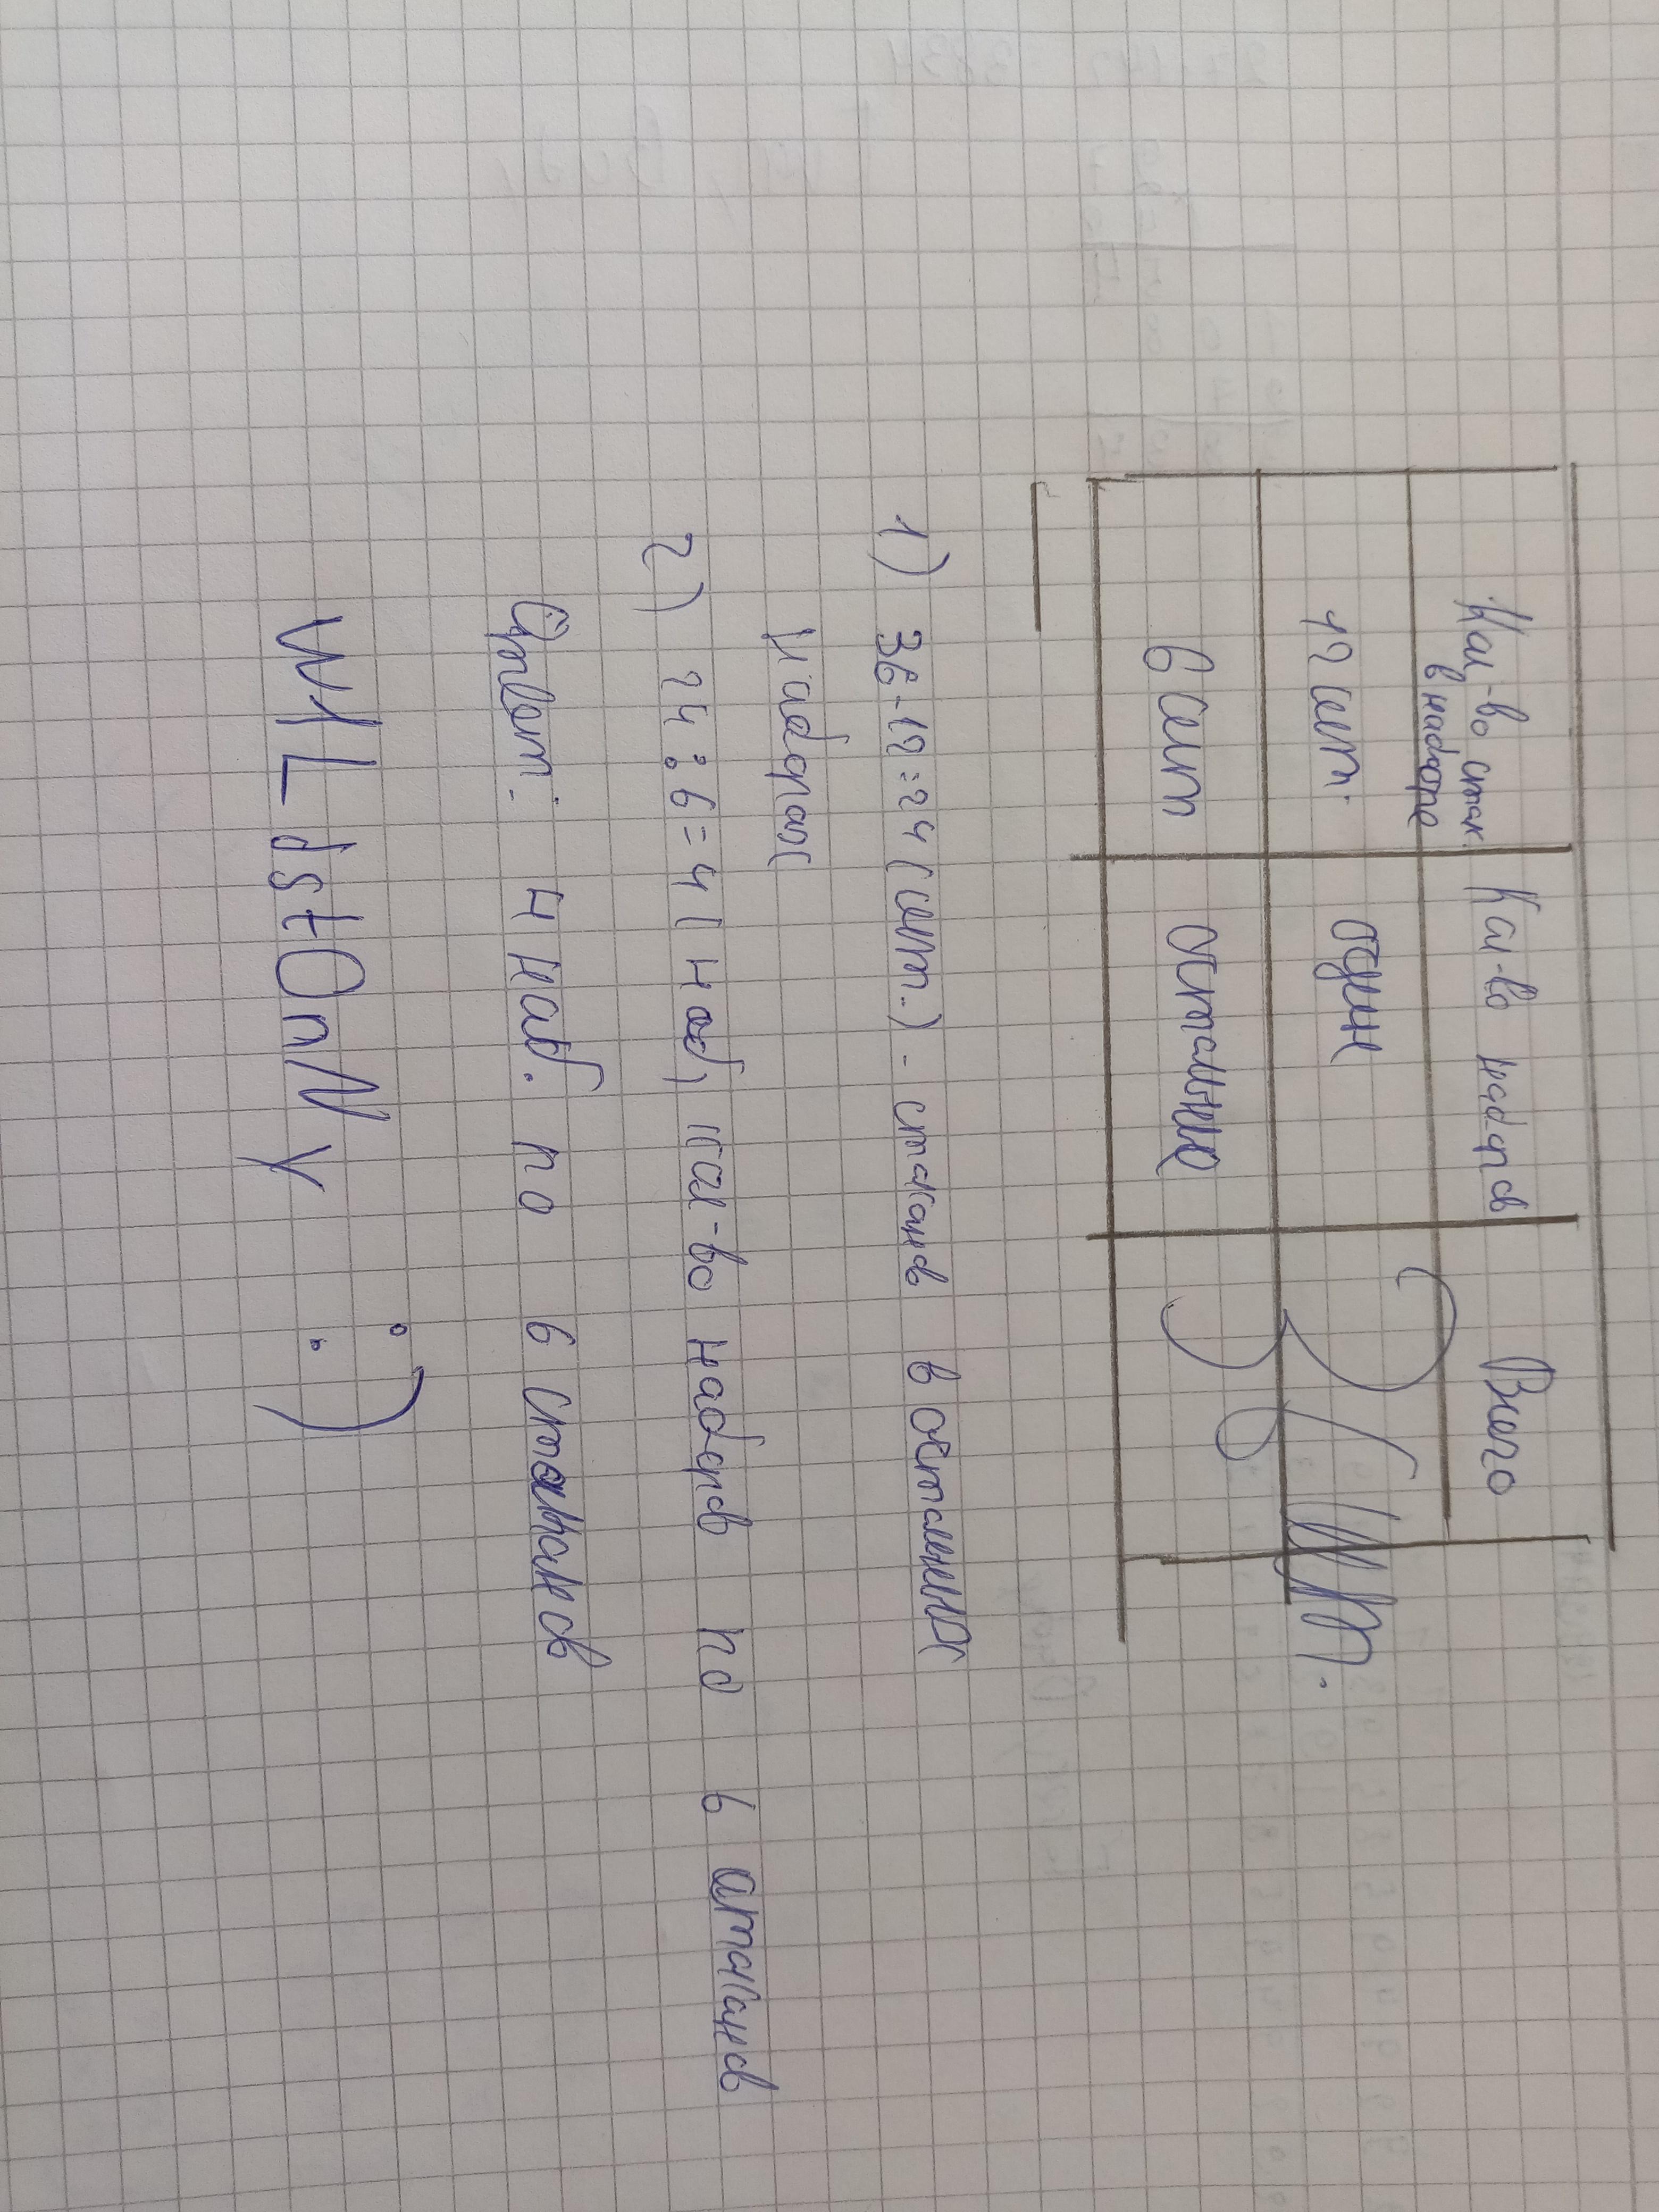 Кол-во стак. Кол-во наборов Всего
в наборе
12 шт. один
6 шт остальные
36 шт.
1) 36-12=24 (шт.) - стаканов в остальных
наборах
2) 24:6=4 (наб) кол-во наборов по 6 стаканов
Ответ: 4 наб. по 6 стаканов
WHLdstOnNy :)